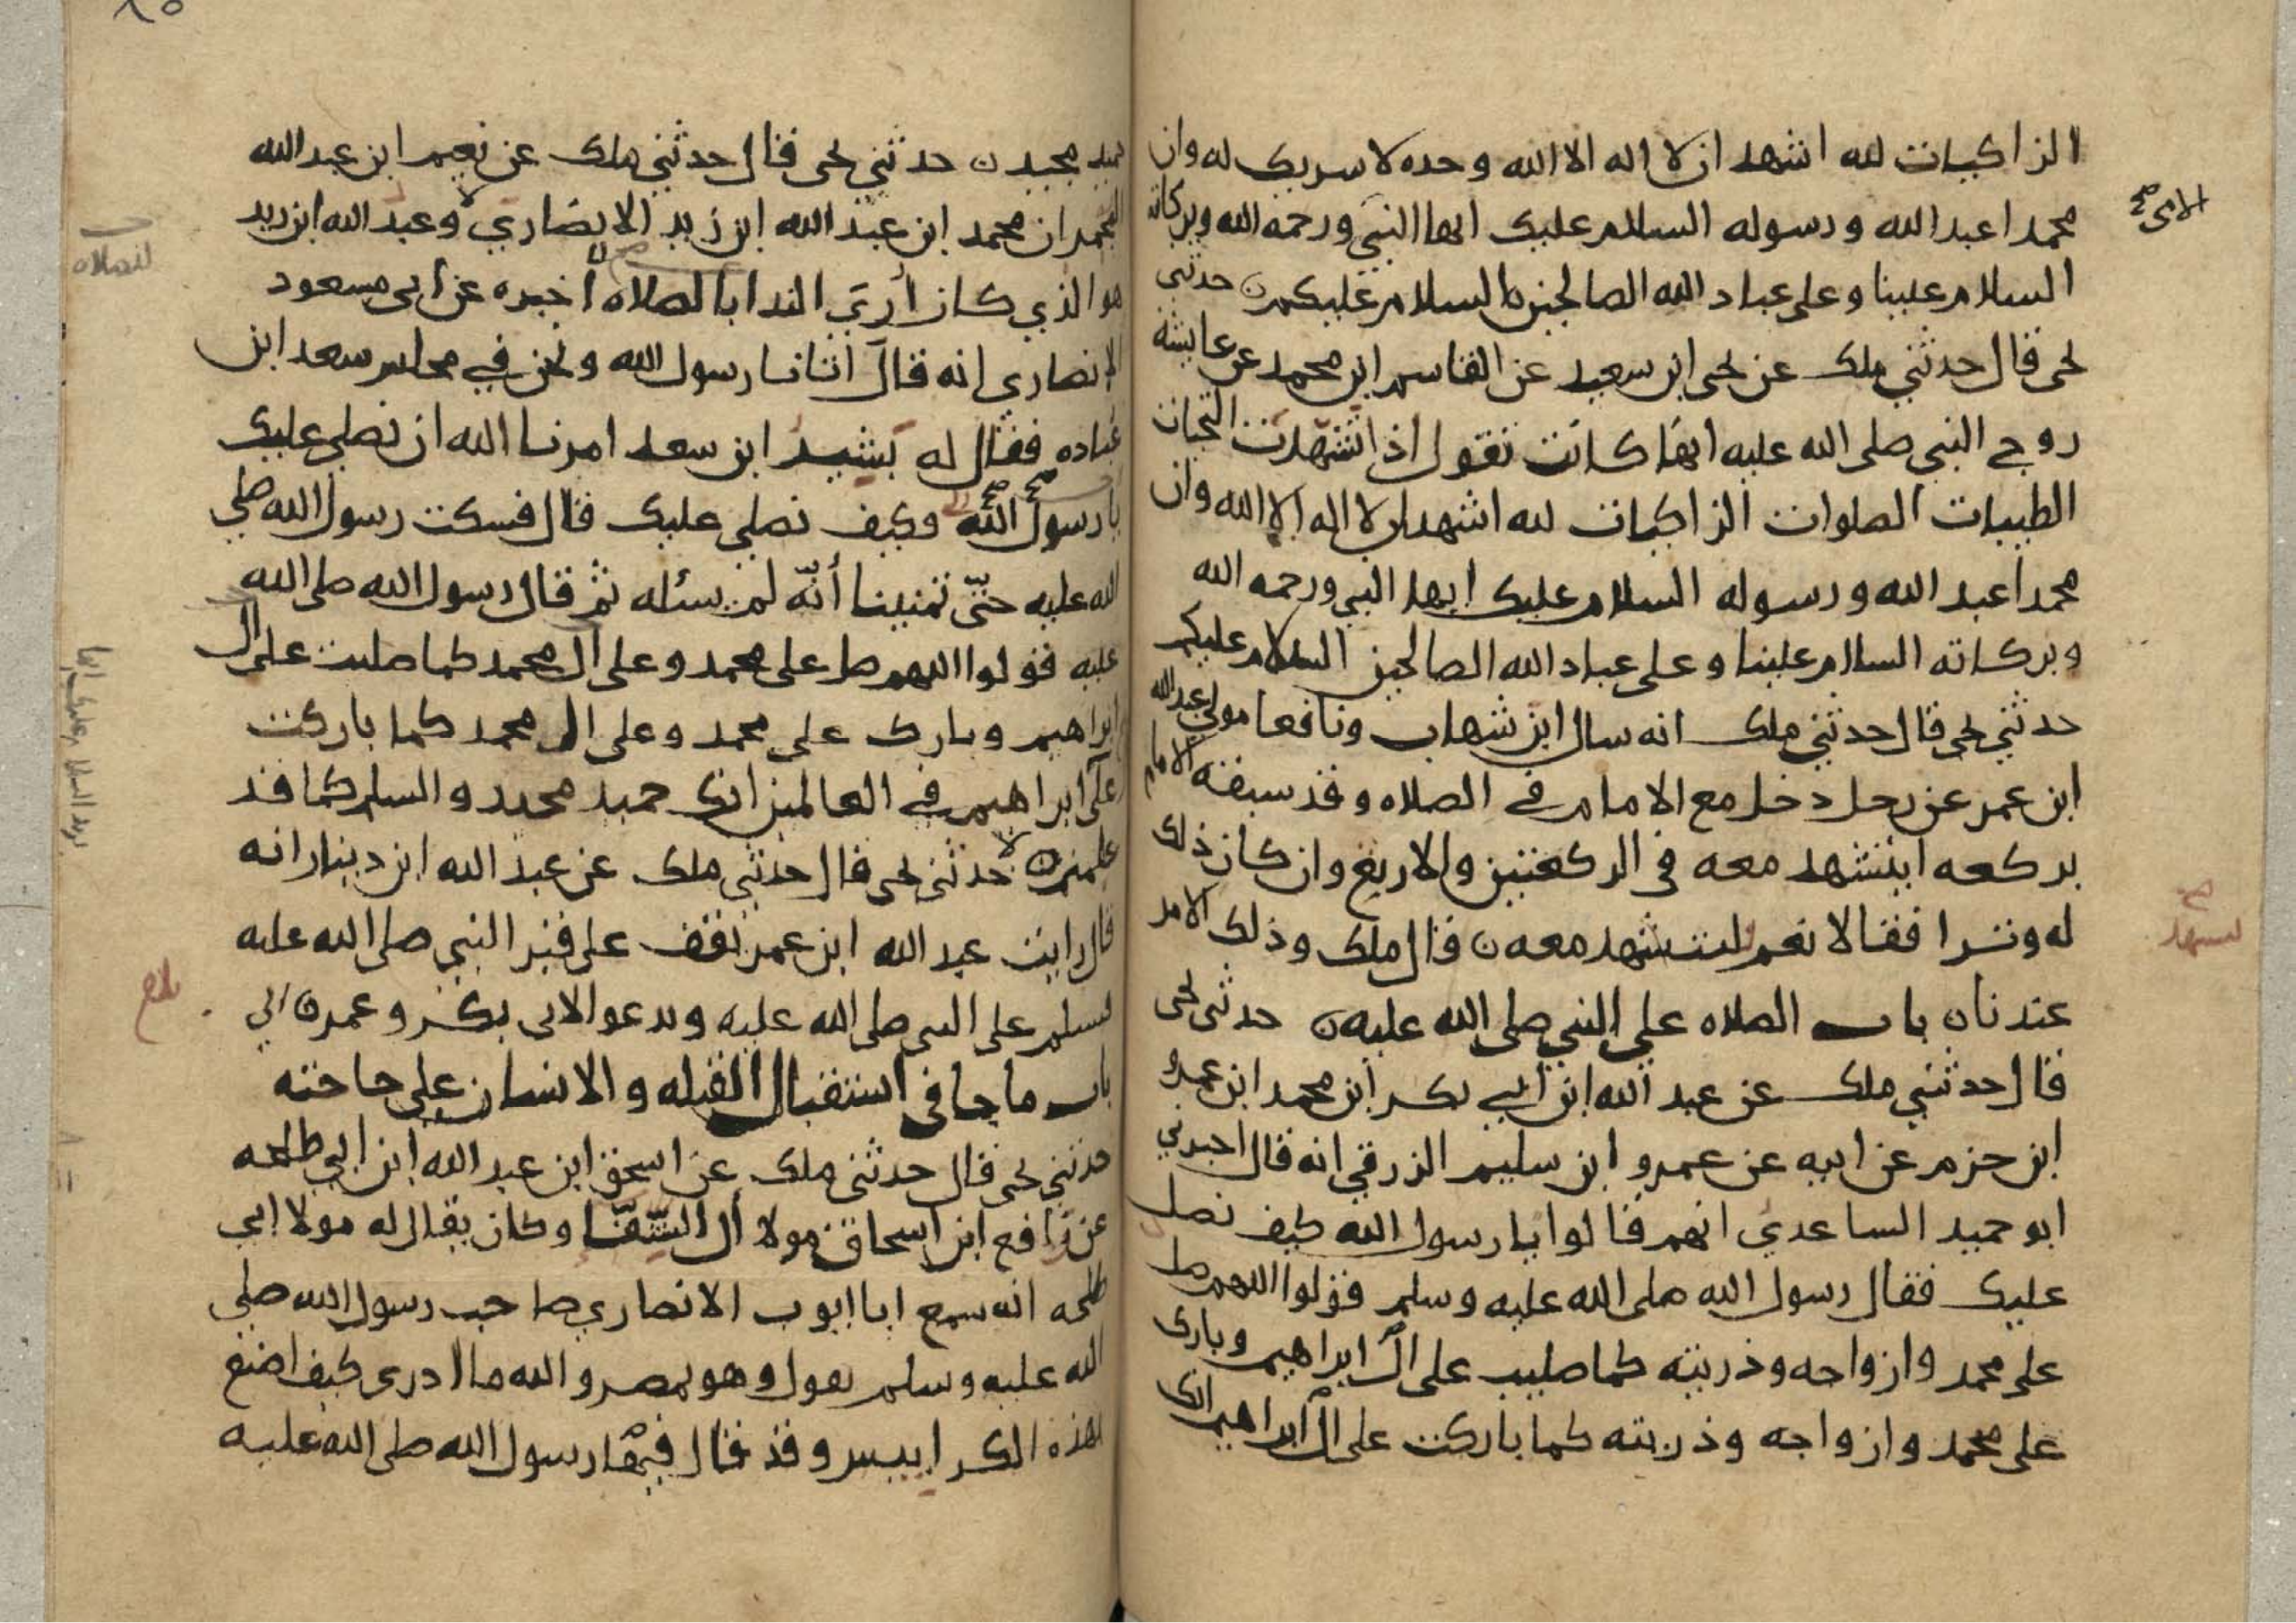 الزاكيات لله اشهد ان لا اله الا الله وحده لا سريك له وان
محمدا عبد الله ورسوله السلام عليك ايها النبي ورحمه الله وبركاته
السلام علينا وعلى عباد الله الصالحين السلام عليكم ن حدثني
يحيى قال حدثني ملك عن يحيى ابن سعيد عن القاسم ابن محمد عن عايشه
زوج النبي صلى الله عليه انها كانت تقول اذا تشهدت التحيات
الطيبات الصلوات الزاكيات لله اشهد ان لا اله الا الله وان
محمدا عبد الله ورسوله السلام عليك ايها النبي ورحمه الله
وبركاته السلام علينا وعلى عباد الله الصالحين السلام عليكم
حدثني يحيى قال حدثني ملك انه سال ابن شهاب ونافعا مولى عبد الله
ابن عمر عن رجل دخل مع الامام في الصلاه وقد سبقه الامام
بركعه ايتشهد معه في الركعتين والاربع وان كان ذلك
له وترا فقالا نعم ليتشهد معه ن قال ملك وذلك الامر
عندنا ن باب الصلاه على النبي صلى الله عليه ن حدثني يحيى
قال حدثني ملك عن عبد الله ابن ابي بكر ابن محمد ابن عمرو
ابن حزم عن ابيه عن عمرو ابن سليم الزرقي انه قال اخبرني
ابو حميد الساعدي انهم قالوا يا رسول الله كيف نصل
عليك فقال رسول الله صلى الله عليه وسلم قولوا اللهم صل
على محمد وازواجه وذريته كما صليت على ال ابراهيم وبارك
على محمد وازواجه وذريته كما باركت على ال ابراهيم انك
حميد مجيد ن حدثني يحيى قال حدثني ملك عن نعيم ابن عبد الله
المجمر ان محمد ابن عبد الله ابن زيد الانصاري وعبد الله ابن زيد
هو الذي كان أري الندا بالصلاه أخبره عن ابي مسعود
الانصاري انه قال اتانا رسول الله ونحن في مجلس سعد ابن
عباده فقال له بشير ابن سعد امرنا الله ان نصلي عليك
يا رسول الله وكيف نصلي عليك قال فسكت رسول الله صلى
الله عليه حتّى تمنينا أنّه لم يسئله ثم قال رسول الله صلى الله
عليه قولوا اللهم صل على محمد وعلى ال محمد كما صليت على ال
ابراهيم وبارك على محمد وعلى ال محمد كما باركت
على ابراهيم في العالمين انك حميد مجيد والسلم كما قد
علمتم ن حدثني يحيى قال حدثني ملك عن عبد الله ابن دينار انه
قال رايت عبد الله ابن عمر يقف على قبر النبي صلى الله عليه
يسلم على النبي صلى الله عليه ويدعو لابي بكر وعمر ن
باب ما جا في استقبال القبله والانسان على حاجته
حدثني يحيى قال حدثني ملك عن اسحق ابن عبد الله ابن ابي طلحه
عن رافع ابن اسحاق مولا أل الشّفّا وكان يقال له مولا ابي
طلحه انه سمع ابا ايوب الانصاري صاحب رسول الله صلى
الله عليه وسلم يقول وهو بمصر والله ما ادري كيف اصنع
بهذه الكراييس وقد قال فيها رسول الله صلى الله عليه
ليتشهد
للصلاه
بلاغ